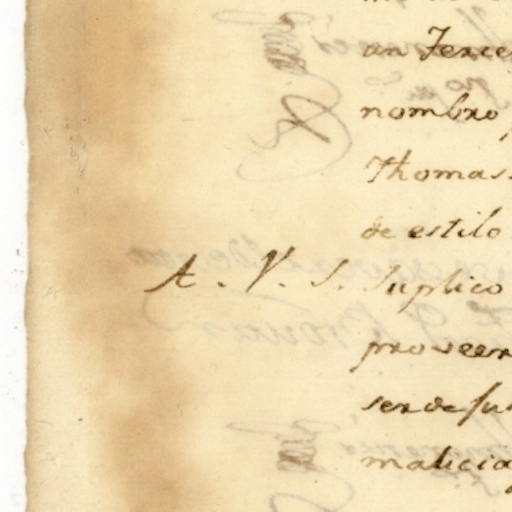 an Terce
nombro
Thomas
de estilo
A. V. S. Suplico
proveer
ser de ju
malicia